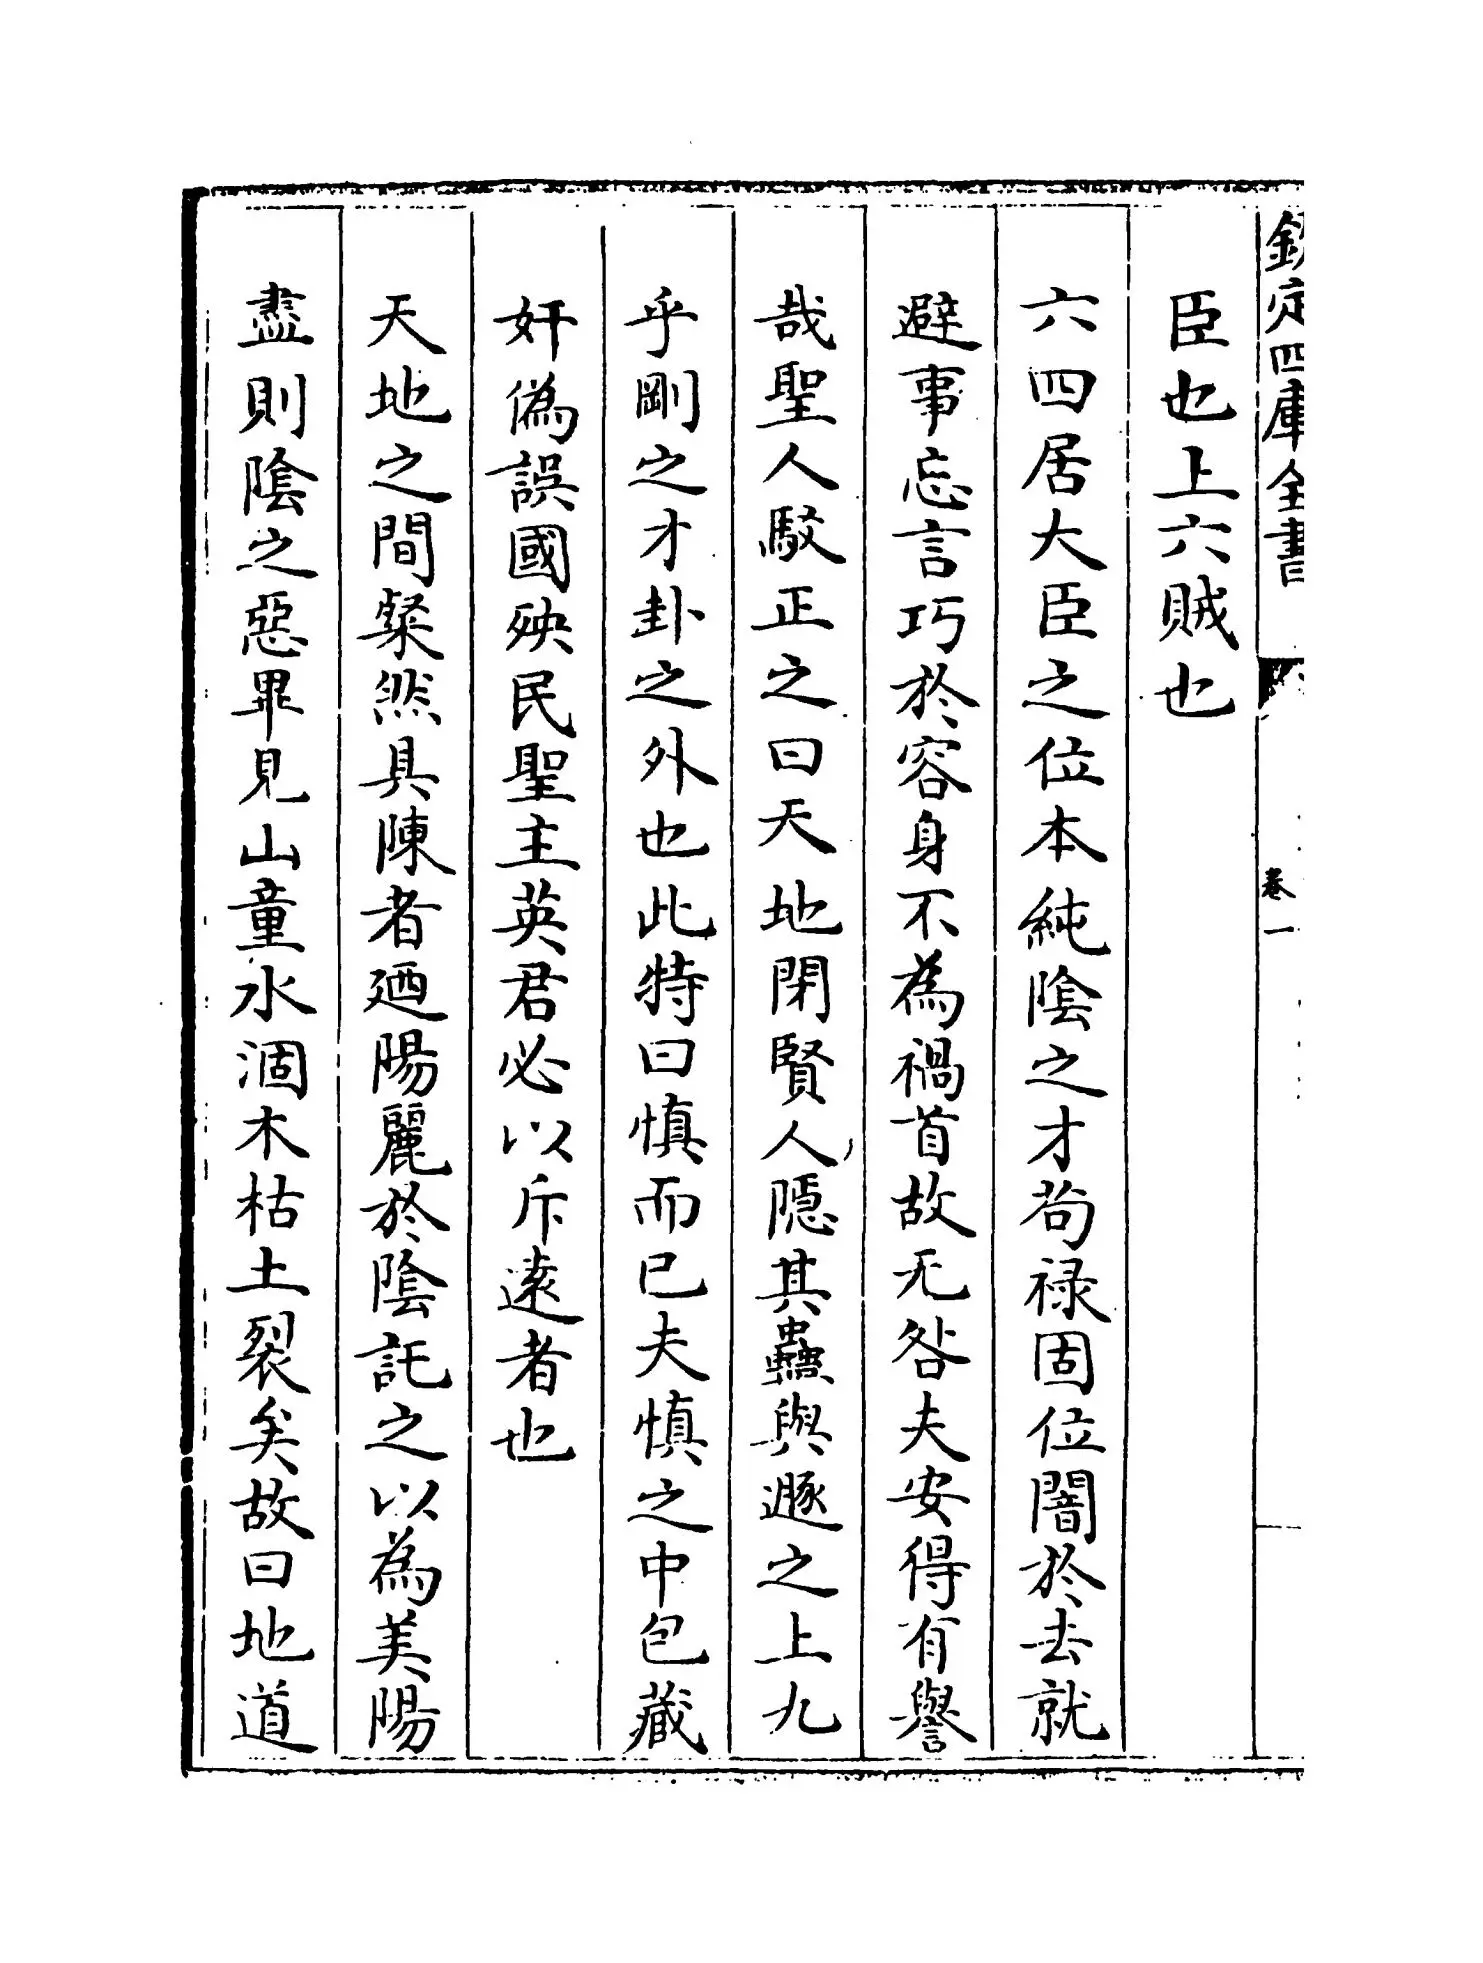 欽定四庫全書
卷一
臣也上六賊也
六四居大臣之位本純隂之才茍禄固位闇於去就
避事忘言巧於容身不為禍首故无咎夫安得有譽
哉聖人駮正之曰天地閉賢人隱其蠱與遯之上九
乎剛之才卦之外也此特曰慎而已夫慎之中包藏
奸偽誤國殃民聖主英君必以斥逺者也
天地之間粲然具陳者廼陽麗於隂託之以為美陽
盡則隂之惡畢見山童水涸木枯土裂矣故曰地道